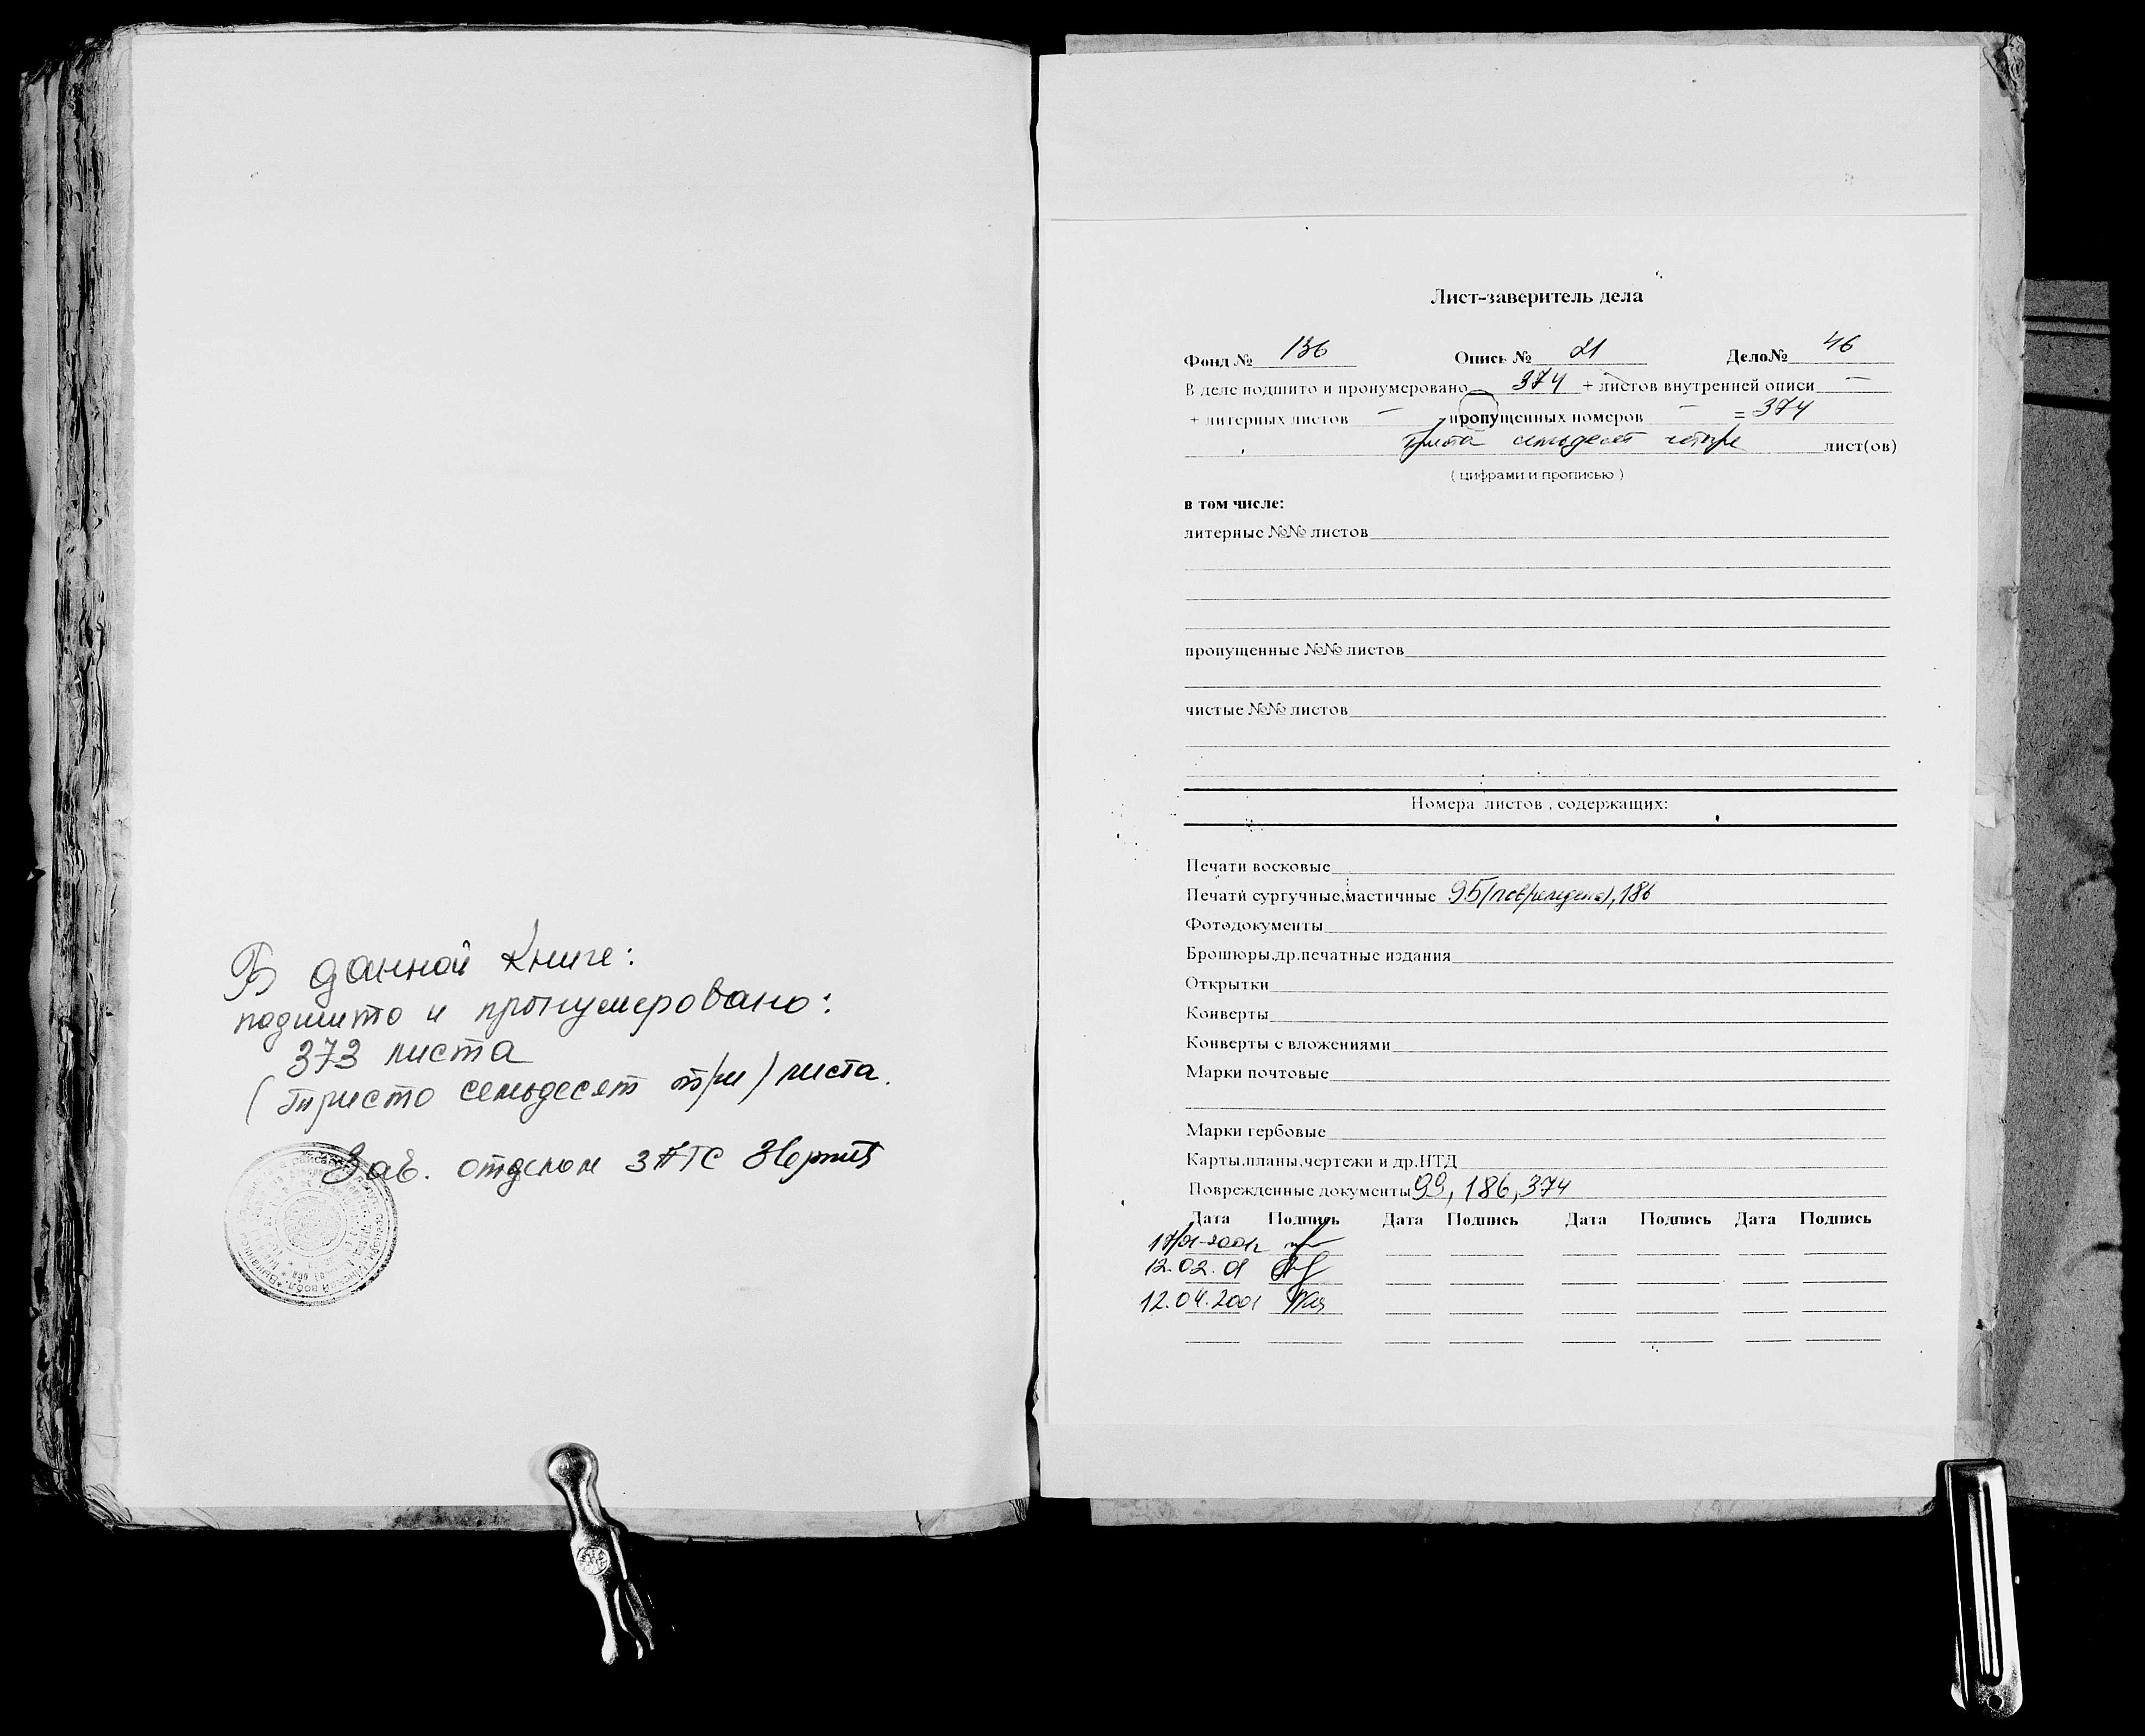 В данной книге:
подшито и пронумеровано:
373 листа
(тристо семьдесят три) листа.
Зав. отделом ЗАГС
Лист-заверитель дела
Фонд № 136 Опись № 21 Дело№ 46
В деле подшито и пронумеровано 374 + листов внутренней описи —
+ литерных листов — - пропущенных номеров — = 374
триста семьдесят четыре лист(ов)
( цифрами и прописью )
в том числе:
литерные №№ листов
пропущенные №№ листов
чистые №№ листов
Номера листов , содержащих:
Печати восковые
Печати сургучные,мастичные 95(повреждена),186
Фотодокументы
Брошюры,др.печатные издания
Открытки
Конверты
Конверты с вложениями
Марки почтовые
Марки гербовые
Карты,планы,чертежи и др.НТД
Поврежденные документы 99, 186, 374
Дата Подпись Дата Подпись Дата Подпись Дата Подпись
12.02.01
12.04.2001